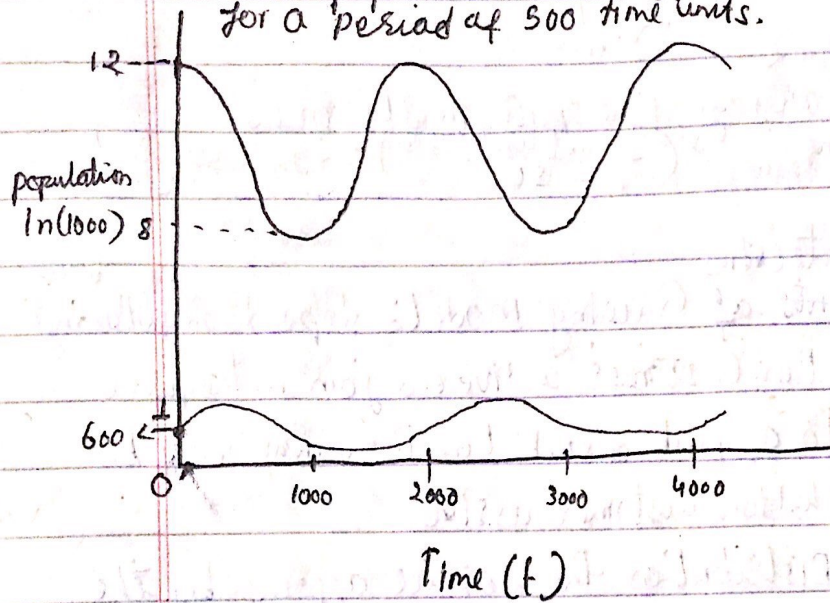 for a period of 500 time units.
12
population
ln(1000) 8
1
600
0 1000 2000 3000 4000
Time (t)